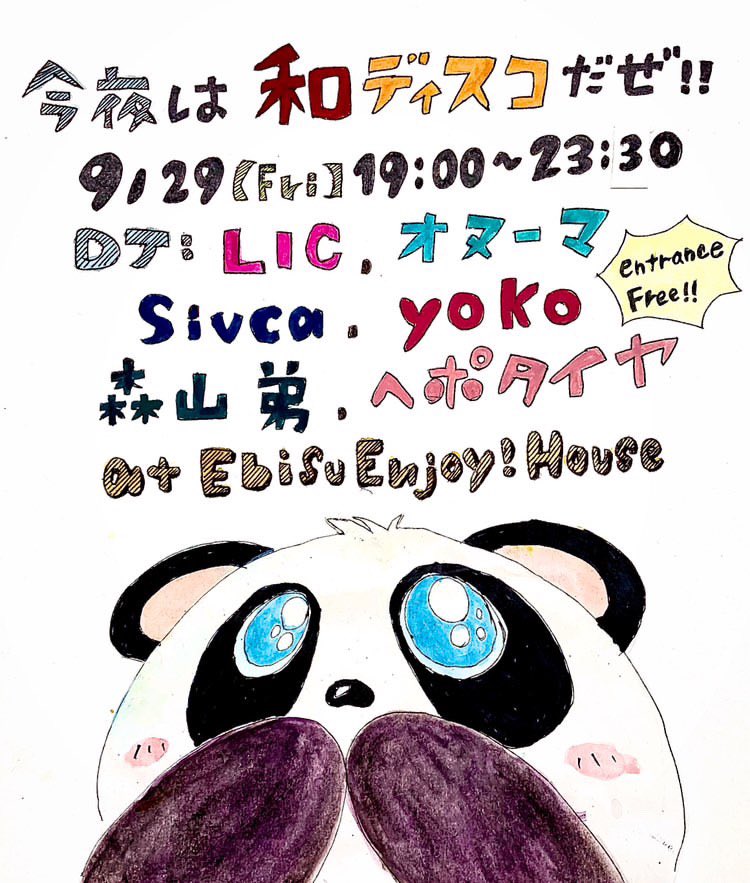 今夜は和ディスコだぜ!!
9/29【Fri:】19:00~23:30
DJ: LIC, オヌーマ
entrance
Free!!
Sivca, yoko
森山弟, ヘポタイヤ
at Ebisu Enjoy! House